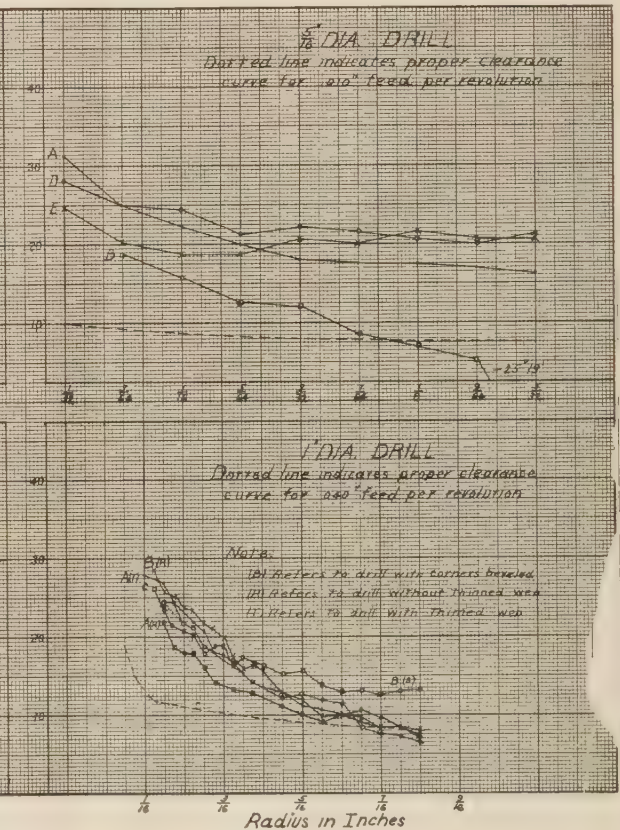 5/16" DIA. DRILL
Dotted line indicates proper clearance
curve for .010" feed per revolution
40
A
30
D
E
20
D
10
-25° 19'
1/32 3/64 1/16 5/64 3/32 7/64 1/8 9/64 5/32
1" DIA. DRILL
Dotted line indicates proper clearance
curve for .040" feed per revolution
40
Note:
30
(B) Refers to drill with corners beveled
(R) Refers to drill without thinned web
(T) Refers to drill with Thinned web
20
B(B)
10
1/16 3/16 5/16 7/16 9/16
Radius in Inches